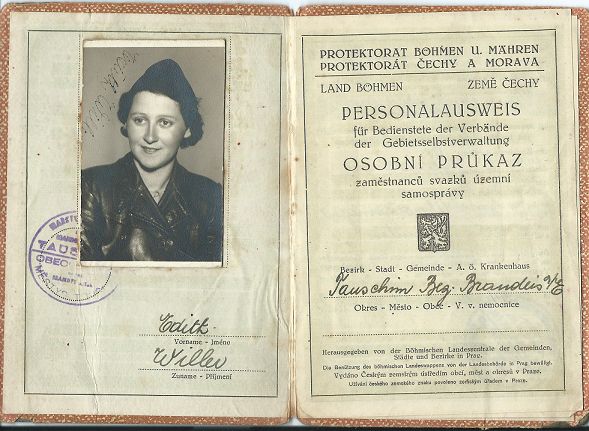 TAUS
OBEC
Edith
Vorname - Jméno
Willer
Zuname - Příjmení
PROTEKTORAT BÖHMEN U. MÄHREN
PROTEKTORÁT ČECHY A MORAVA
LAND BÖHMEN ZEMĚ ČECHY
PERSONALAUSWEIS
für Bedienstete der Verbände
der Gebietsselbstverwaltung
OSOBNÍ PRŮKAZ
zaměstnanců svazků územní
samosprávy
Bezirk - Stadt - Gemeinde - A. ö. Krankenhaus
Tauschim Bez. Brandeis a/E
Okres - Město - Obec - V. v. nemocnice
Herausgegeben von der Böhmischen Landeszentrale der Gemeinden,
Städte und Bezirke in Prag.
Die Benützung des böhmischen Landeswappens von der Landesbehörde in Prag bewilligt.
Vydáno Českým zemským ústředím obcí, měst a okresů v Praze.
Užívání českého zemského znaku povoleno zemským úřadem v Praze.